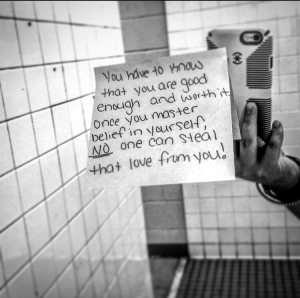 You have to know
that you are good
enough and worth it.
once you master
belief in yourself,
NO one can steal
that love from you!